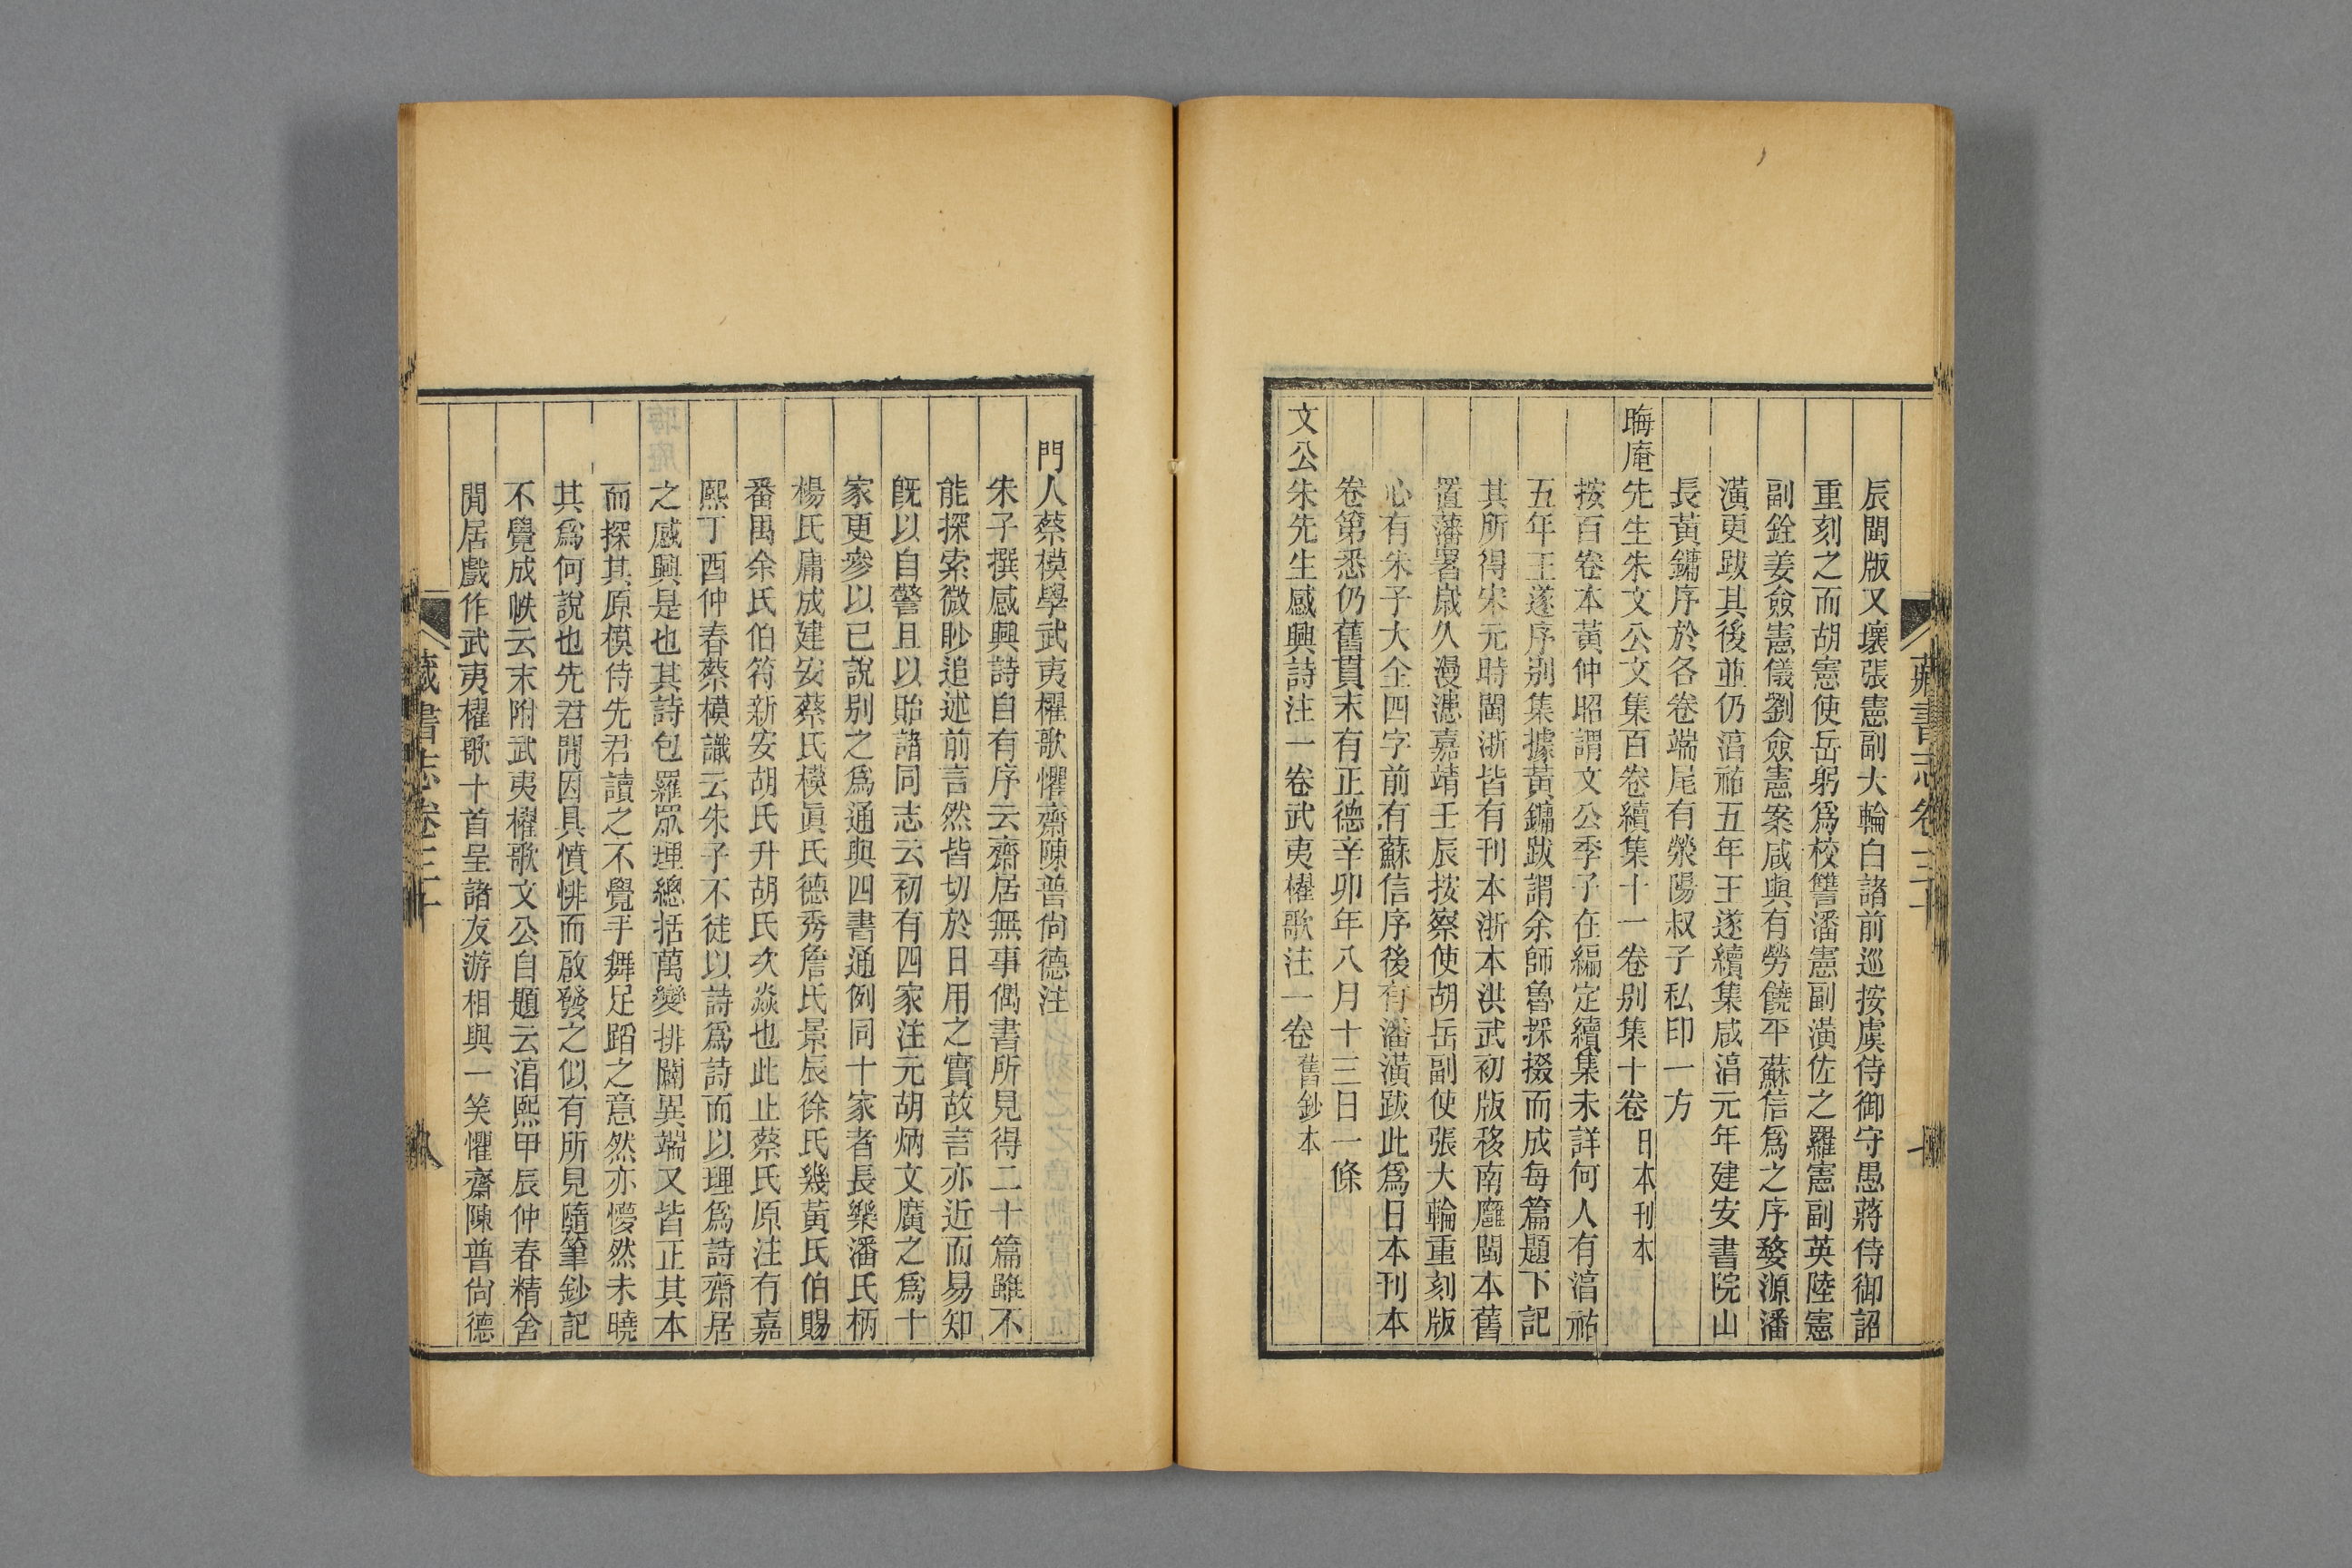 辰閩版又壞張憲副大輪白諸前巡按虞侍御守愚蔣侍御詔
重刻之而胡憲使岳躬爲校讐潘憲副潢佐之羅憲副英陸憲
副銓姜僉憲儀劉僉憲案咸與有勞饒平蘇信爲之序婺源潘
潢更跋其後並仍湻祐五年王遂續集咸湻元年建安書院山
長黃鏞序於各卷端尾有滎陽叔子私印一方
晦庵先生朱文公文集百卷續集十一卷别集十卷日本刊本
按百卷本黃仲昭謂文公季子在編定續集未詳何人有湻祐
五年王遂序别集據黃鏞跋謂余師魯採掇而成每篇題下記
其所得宋元時閩浙皆有刊本浙本洪武初版移南廱閩本舊
置藩署歲久漫漶嘉靖壬辰按察使胡岳副使張大輪重刻版
心有朱子大全四字前有蘇信序後有潘潢跋此爲日本刊本
卷第悉仍舊貫末有正德辛卯年八月十三日一條
文公朱先生感興詩注一卷武夷櫂歌注一卷舊鈔本
門人蔡模學武夷櫂歌懼齋陳普尙德注
朱子撰感興詩自有序云齋居無事偶書所見得二十篇雖不
能探索微眇追述前言然皆切於日用之實故言亦近而易知
旣以自警且以貽諸同志云初有四家注元胡炳文廣之爲十
家更參以已說别之爲通與四書通例同十家者長樂潘氏柄
楊氏庸成建安蔡氏模眞氏德秀詹氏景辰徐氏幾黃氏伯賜
番禺余氏伯符新安胡氏升胡氏次焱也此止蔡氏原注有嘉
熙丁酉仲春蔡模識云朱子不徒以詩爲詩而以理爲詩齋居
之感興是也其詩包羅眾理總括萬變排闢異端又皆正其本
而探其原模侍先君讀之不覺手舞足蹈之意然亦懜然未曉
其爲何說也先君閒因具憤悱而啟發之似有所見隨筆鈔記
不覺成帙云末附武夷櫂歌文公自題云湻熙甲辰仲春精舍
閒居戲作武夷櫂歌十首呈諸友游相與一笑懼齋陳普尙德